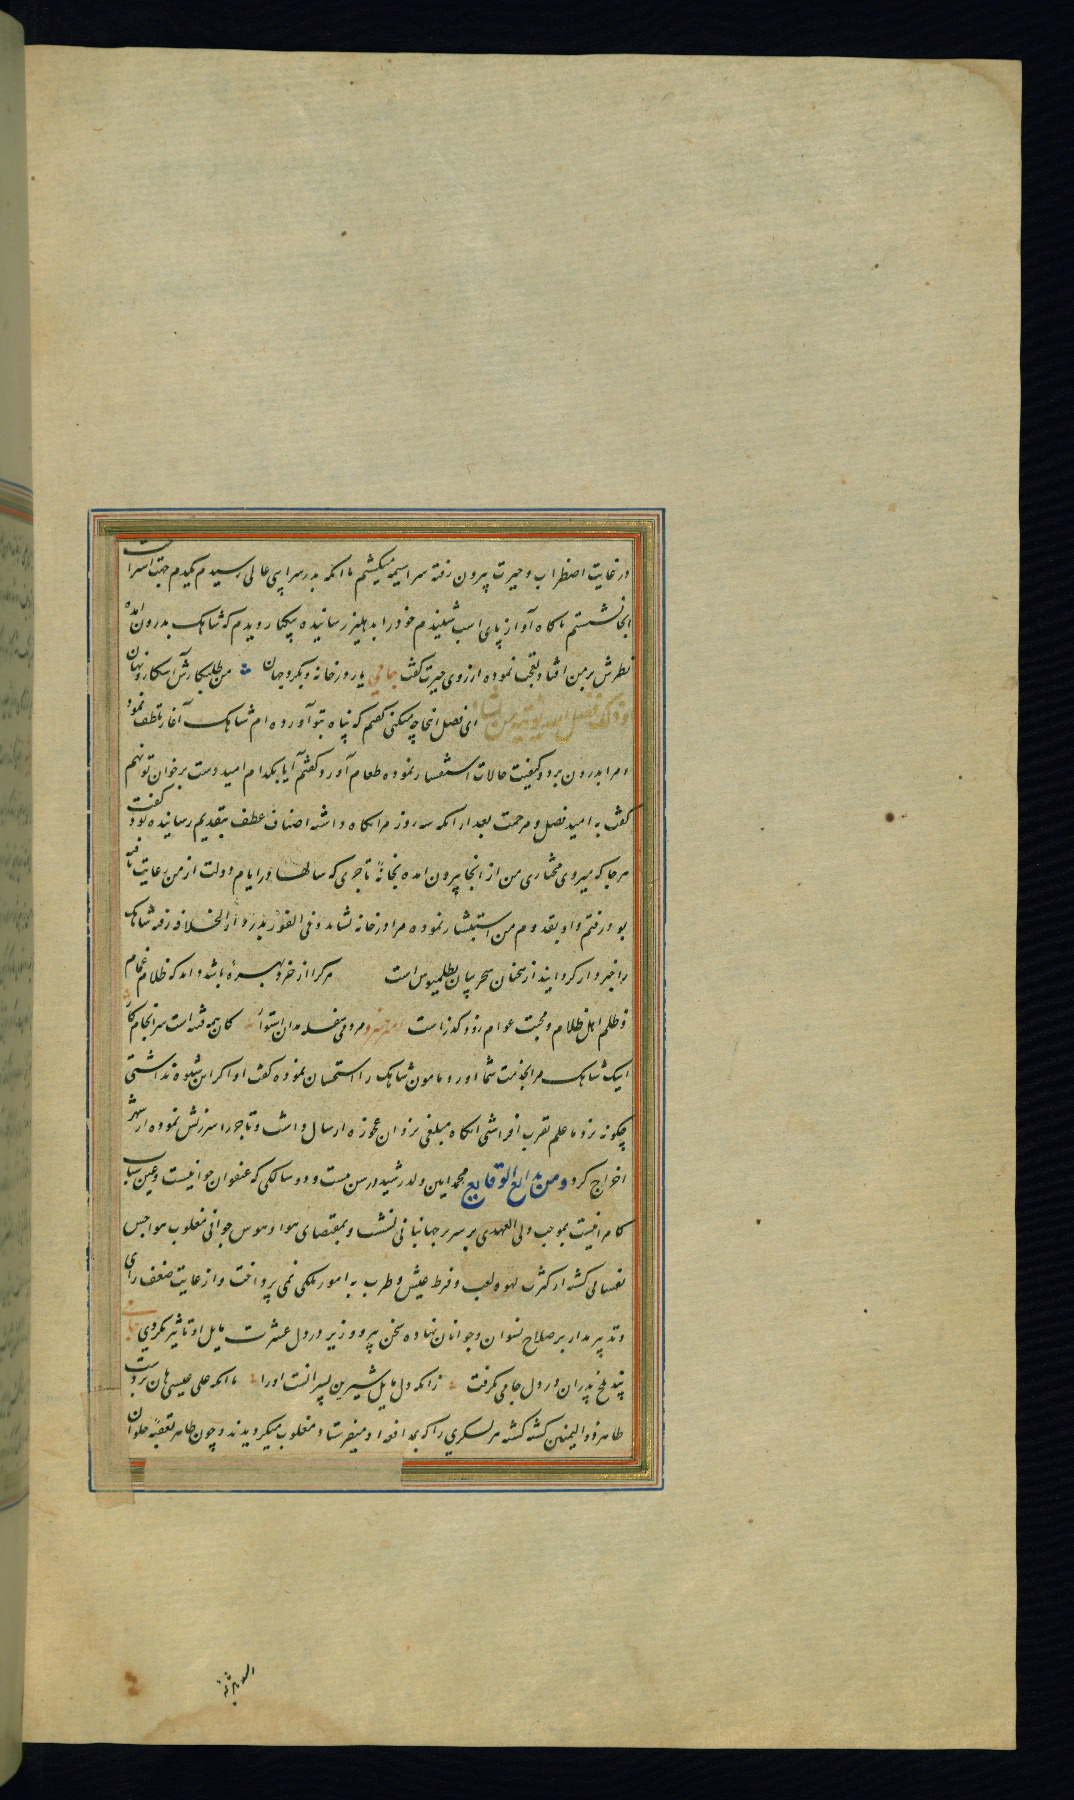 در غایت اضطراب و حیرت بیرون رفته سراسیمه میکشتم تا انکه بدر سرایی عالی رسیدم یکدم جهت استراحت
انجا نشستم ناکاه آواز پای اسب شنیدم خود را بدهلیز رسانیده بیکبار دیدم که شاهک بدرون امده
نظرش بر من افتاد تعجب نموده از روی حیرت کفت جامی یار در خانه و بکرد جهان من طلبکارش آشکار و نهان
ای فضل اینجا چه میکنی کفتم که پناه بتو آورده ام شاهک آغاز تلطف نمود
و مرا بدرون برد و کیفیت حالات استفسار نموده طعام آورد کفتم آیا بکدام امید دست بر خوان تو نهم
کفت به امید فضل و مرحمت بعد از انکه سه روز مرا نکاه داشته اصناف عطف بتقدیم رسانیده بود کفت
هر جا که میروی مختاری من از انجا بیرون امده بخانه تاجری که سالها در ایام دولت از من رعایت یافته
بود رفتم و او بقدوم من استبشار نموده مرا در خانه نشاند و فی الفور بدر دار الخلافه رفته شاهک
را خبردار کردانید از سخنان سحر بیان بطلمیوس است هر که را از خرد بهره باشد داند که ظلام غمام
و ظلم اهل ظلام و محبت عوام زود کذر است و مردمی سفله مدان استوار کان همه فتنه است سرانجام کار
اینک شاهک مرا بخدمت شما اورد مامون شاهک را استحسان نموده کفت او اکر این شیوه نداشتی
چکونه نزد ما علم تقرب افراشتی انکاه مبلغی نزد ان عجوزه ارسال داشت و تاجر را سرزنش نموده از شهر
اخراج کرد ومن بدایع الوقایع محمد امین ولد رشید در سن بیست و دو سالکی که عنفوان جوانیست و عین شباب
کامرانیست بموجب ولی العهدی بر سریر جهانبانی نشست و بمقتضای هوا و هوس جوانی مغلوب هواجس
نفسانی کشته از کثرت لهو و لعب و فرط عیش و طرب به امور ملکی نمی پرداخت و از غایت ضعف رای
و تدبیر مدار بر صلاح نسوان و جوانان نهاده سخن پیر و وزیر در دل عشرت مایل او تاثیر نکردی جامی
پند تلخ پدران در دل جامی نکرفت زانکه دل مایل شیرین پسرانست او را تا انکه علی عیسی هان بر دست
طاهر ذو الیمینین کشته کشته هر لشکری را که بمدافعه او میفرستاد مغلوب میکردیدند و چون طاهر بعقبه حلوان